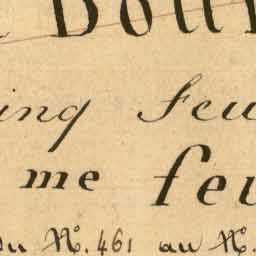 Dou
ing feu
me feu
du N. 461 au N.